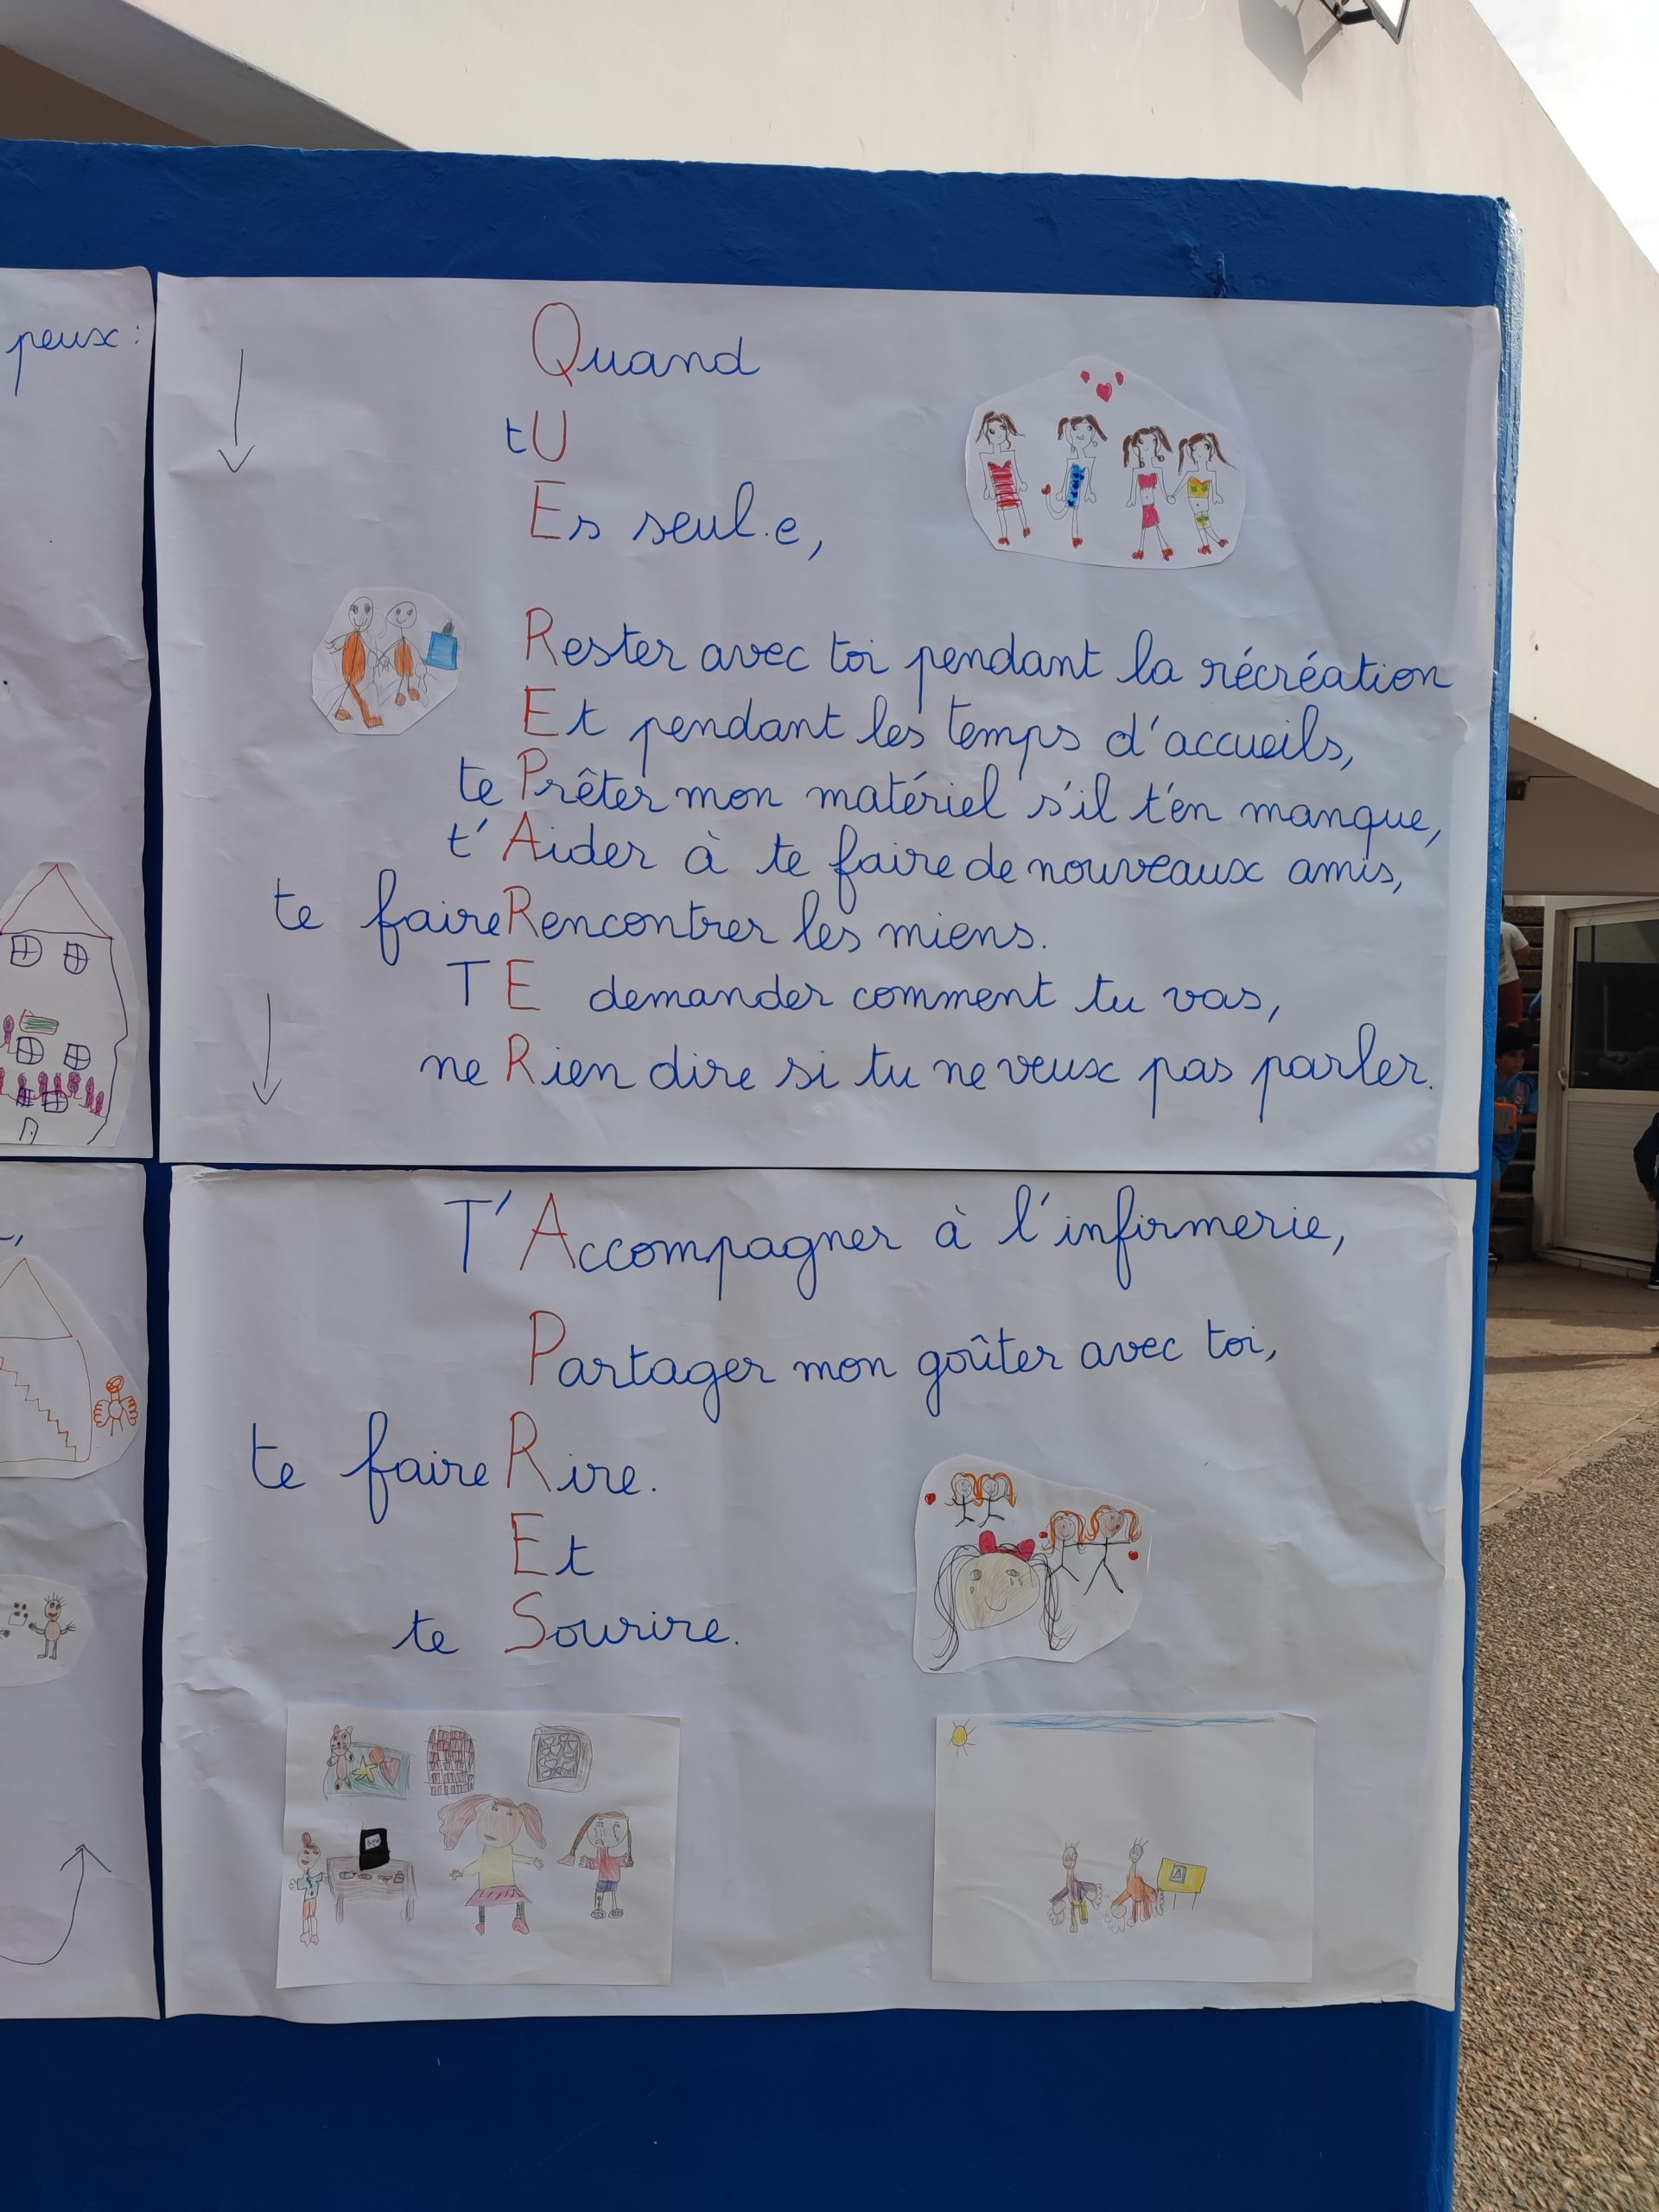 peux :
Quand
tU
Es seul.e,
Rester avec toi pendant la récréation
Et pendant les temps d'accueils,
te Prêter mon matériel s'il t'en manque,
t'Aider à te faire de nouveaux amis,
te faire Rencontrer les miens.
TE demander comment tu vas,
ne Rien dire si tu ne veux pas parler.
T'Accompagner à l'infirmerie,
Partager mon goûter avec toi,
te faire Rire.
Et
te Sourire.